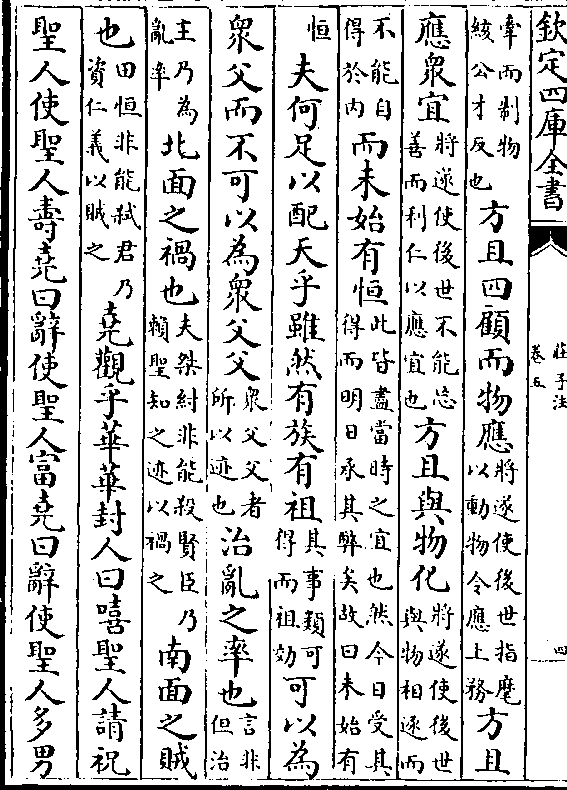 欽定四庫全書
莊子注
卷五
四
牽而制物
絯公才反也
方且四顧而物應
將遂使後世指麾
以動物令應上務
方且
應衆宜
將遂使後世不能忘
善而利仁以應宜也
方且與物化
將遂使後世
與物相逐而
不能自
得於内
而未始有恒
此皆盡當時之宜也然今日受其
得而明日承其弊矣故曰未始有
恒
夫何足以配天乎雖然有族有祖
其事類可
得而祖効
可以為
衆父而不可以為衆父父
衆父父者
所以迹也
治亂之率也
言非
但治
主乃為
亂率
北面之禍也
夫桀紂非能殺賢臣乃
頼聖知之迹以禍之
南面之賊
也
田恒非能弑君乃
資仁義以賊之
堯觀乎華華封人曰嘻聖人請祝
聖人使聖人壽堯曰辭使聖人富堯曰辭使聖人多男